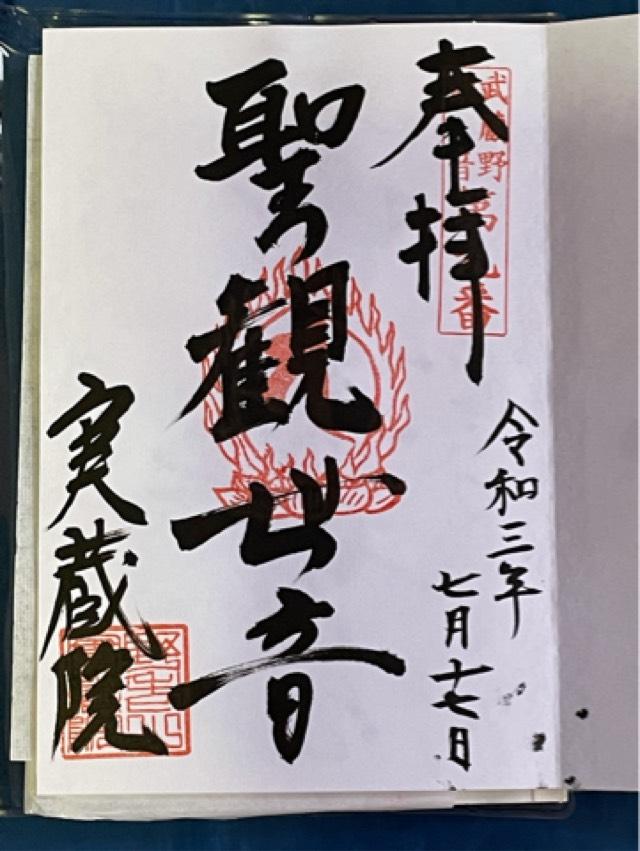 奉拝
武蔵野
番
令和三年
七月十七日
聖観世音
実蔵院